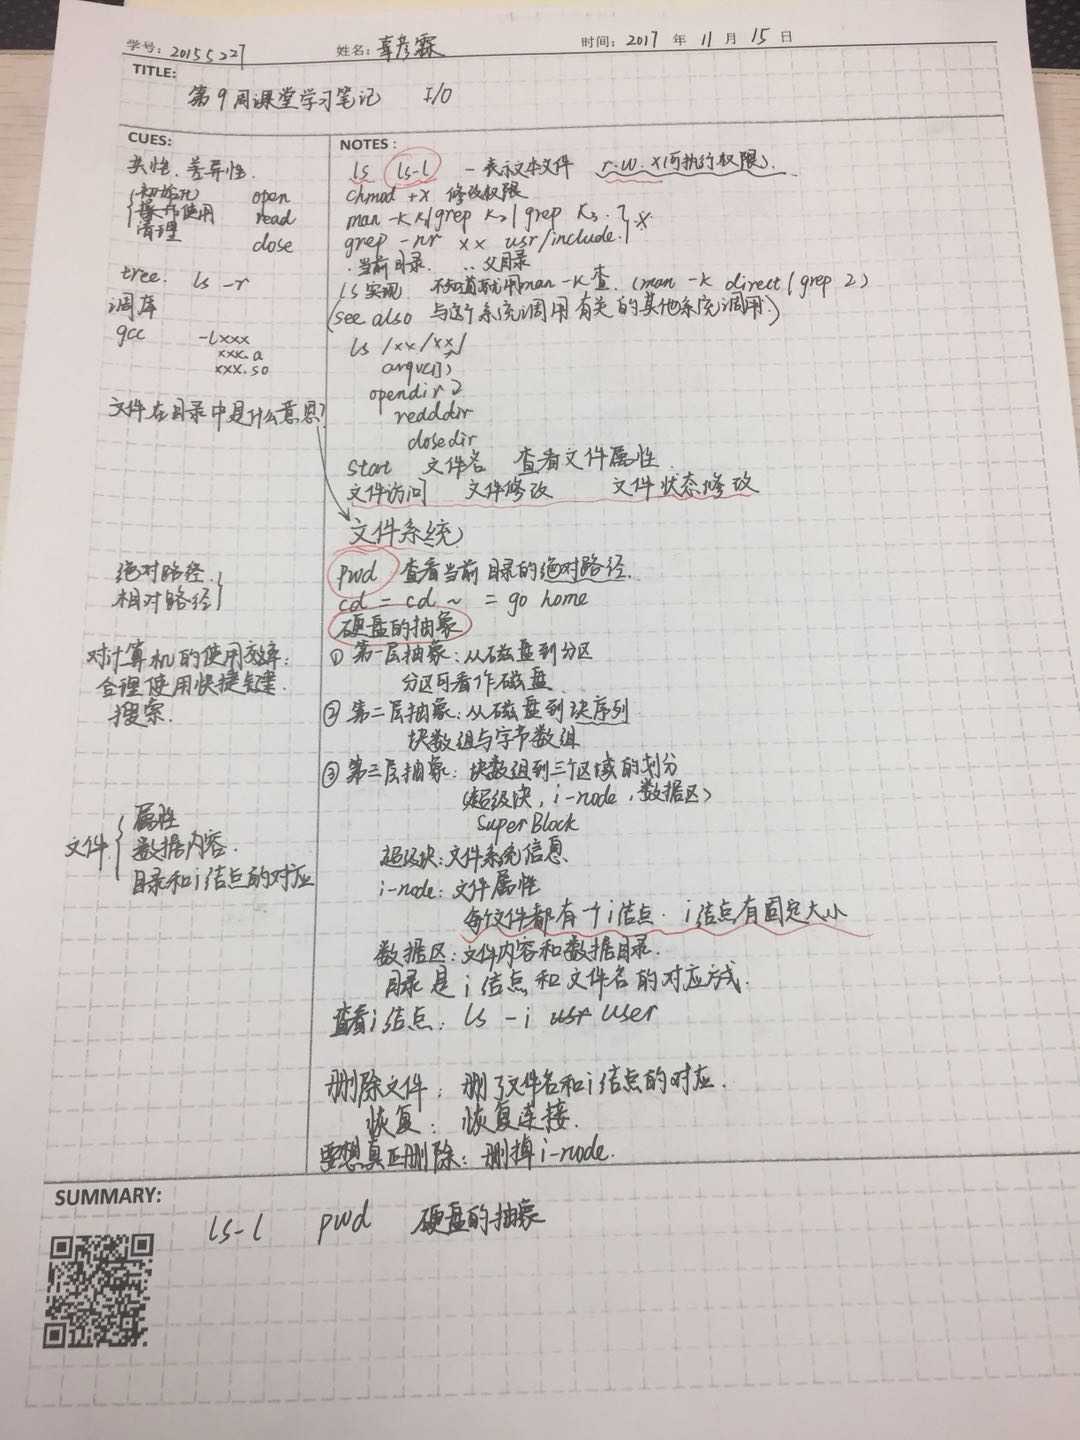 学号: 20155227 姓名: 辜彦霖 时间: 2017 年 11 月 15 日
TITLE:
第9周课堂学习笔记 I/O
CUES:
类性、差异性.
初始化 open
使用 read
清理 close
tree. ls -r
调库
gcc -lxxx
xxx.a
xxx.so
文件在目录中是什么意思?
绝对路径.
相对路径
对计算机的使用效率:
合理使用快捷键.
搜索.
文件
属性
数据内容.
目录和i结点的对应
NOTES:
ls ls-l - 表示文本文件 r.w.x(可执行权限).
chmod +x 修改权限
man -k k1|grep k2|grep k3. *
grep -nr xx usr/include.
. 当前目录. .. 父目录
ls 实现 不知道就用man -k查. (man -k direct|grep 2)
(see also 与这个系统调用有关的其他系统调用.)
ls /xx/xx/
opendir
redddir
closedir
文件名 查看文件属性
文件访问 文件修改 文件状态修改
文件系统
pwd 查看当前目录的绝对路径.
cd = cd ~ = go home
硬盘的抽象
① 第一层抽象: 从磁盘到分区
分区可看作磁盘
② 第二层抽象: 从磁盘到块序列
块数组与字节数组
③ 第三层抽象: 块数组到三个区域的划分
(超级块, i-node, 数据区)
Super Block
超级块: 文件系统信息.
i-node: 文件属性
每个文件都有一个i结点. i结点有固定大小
数据区: 文件内容和数据目录.
目录是i结点和文件名的对应方式.
查看i结点: ls -i usr user
删除文件: 删了文件名和i结点的对应.
恢复: 恢复连接.
要想真正删除: 删掉i-node.
SUMMARY:
ls-l pwd 硬盘的抽象